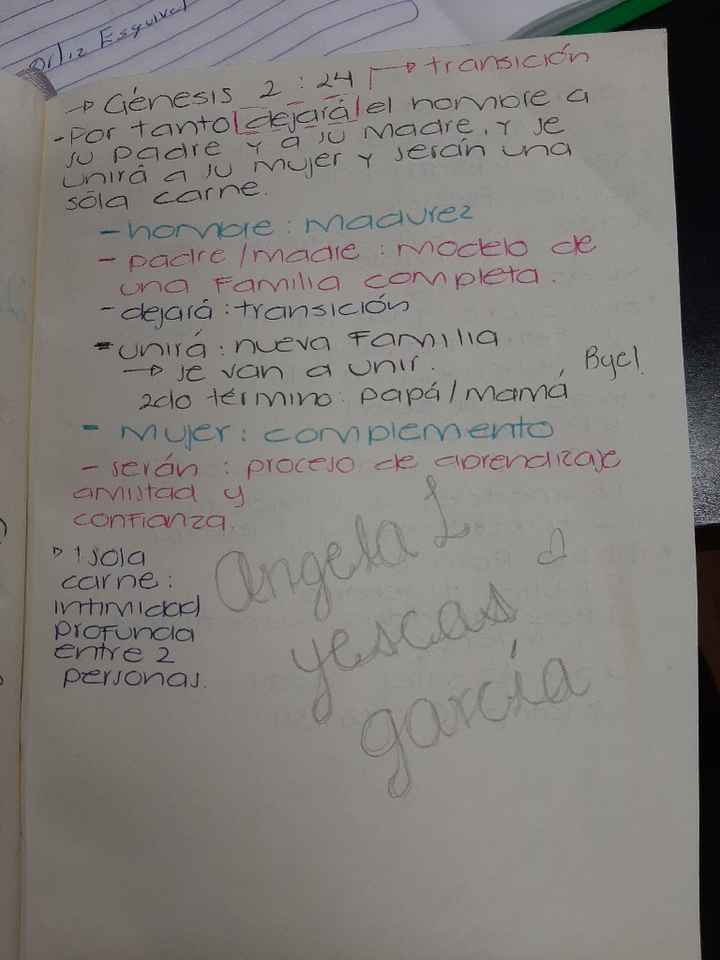 Ortiz Esquivel
→ Génesis 2 : 24 → transición
- Por tanto dejará el hombre a
su padre y a su Madre, y se
unirá a su mujer y serán una
sóla carne.
- hombre : madurez
- padre / madre : modelo de
una familia completa.
- dejará : transición
- unirá : nueva familia
→ se van a unir.
2do término : papá / mamá
Byel
- Mujer : complemento
- serán : proceso de aprendizaje
amistad y
confianza.
1 sola
carne :
intimidad
profunda
entre 2
personas.
Angela L
yescas
garcía